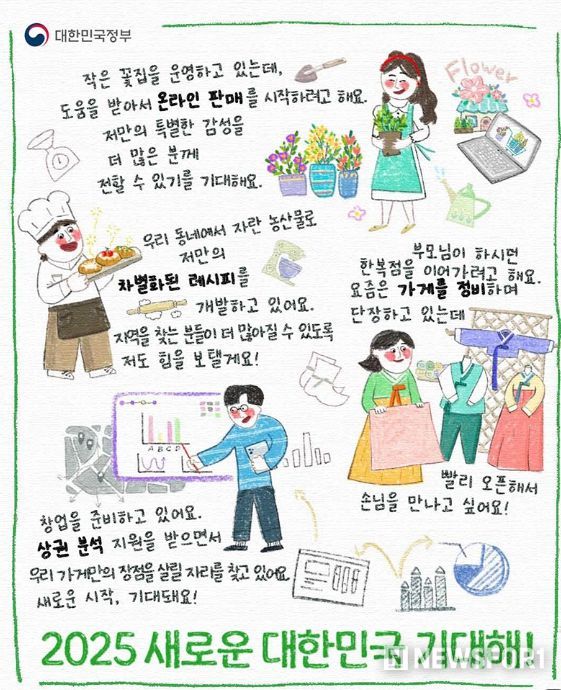 대한민국정부
작은 꽃집을 운영하고 있는데,
도움을 받아서 온라인 판매를 시작하려고 해요.
저만의 특별한 감성을
더 많은 분께
전할 수 있기를 기대해요.
Flower
우리 동네에서 자란 농산물로
저만의
차별화된 레시피를
개발하고 있어요.
지역을 찾는 분들이 더 많아질 수 있도록
저도 힘을 보탤게요!
부모님이 하시던
한복점을 이어가려고 해요.
요즘은 가게를 정비하며
단장하고 있는데
빨리 오픈해서
손님을 만나고 싶어요!
A B C D
창업을 준비하고 있어요.
상권 분석 지원을 받으면서
우리 가게만의 장점을 살릴 자리를 찾고 있어요
새로운 시작, 기대돼요!
2025 새로운 대한민국 기대해!
N NEWSFOR1